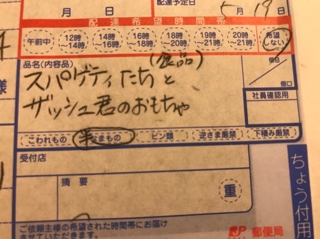 月 日
配達予定日
5月19日
配達希望時間帯
午前中 12時～14時 14時～16時 16時～18時 18時～20時 19時～21時 20時～21時 希望しない
品名(内容品)
(食品)
スパゲティたちと
ザッシュ君のおもちゃ
個数
個口
社員確認用
こわれもの なまもの ビン類 逆さま厳禁 下積み厳禁
受付店
摘要
重
ご依頼主様の希望された時間帯にお届け
させていただきます。
郵便局
ちょう付用
様